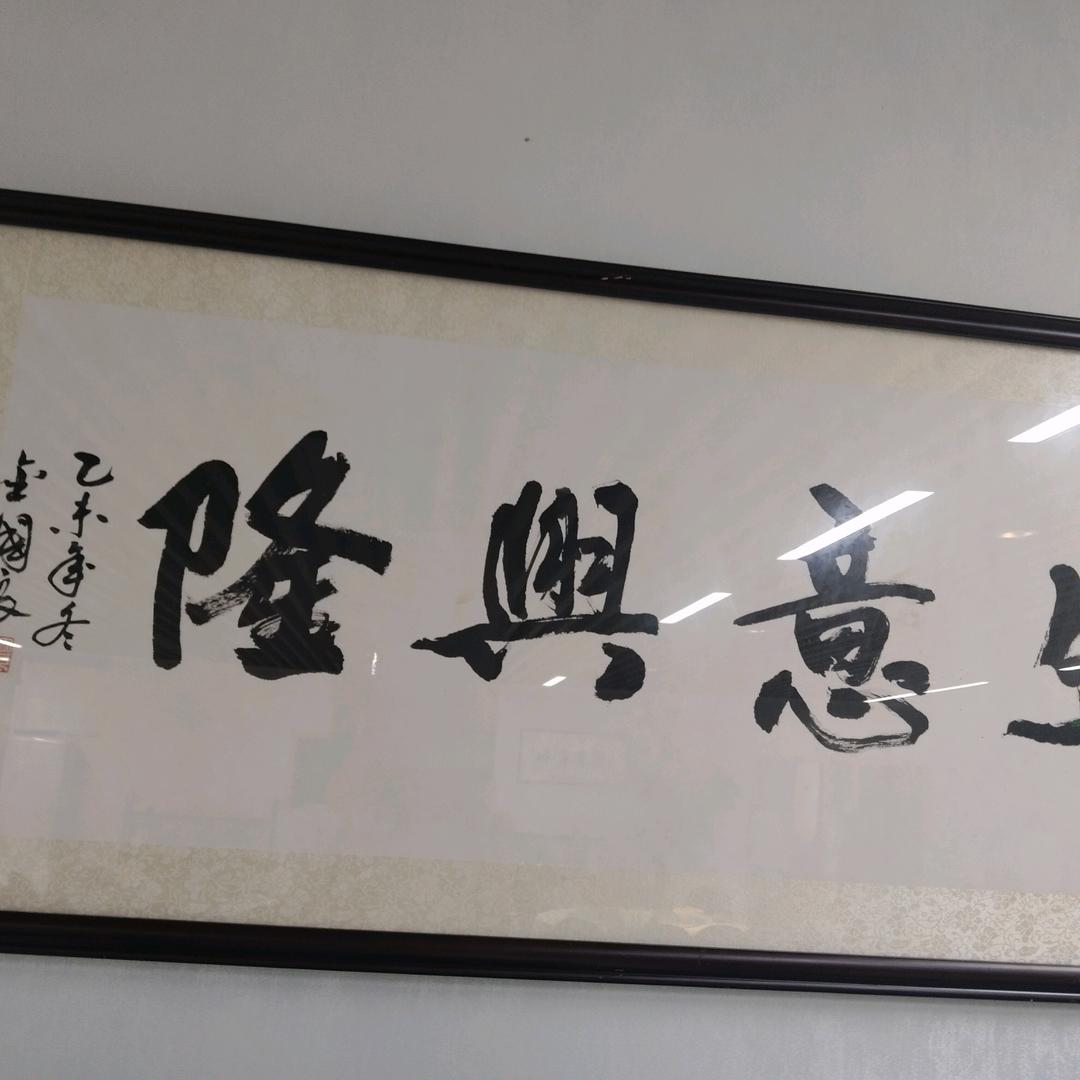 生意興隆
乙未年冬
金國